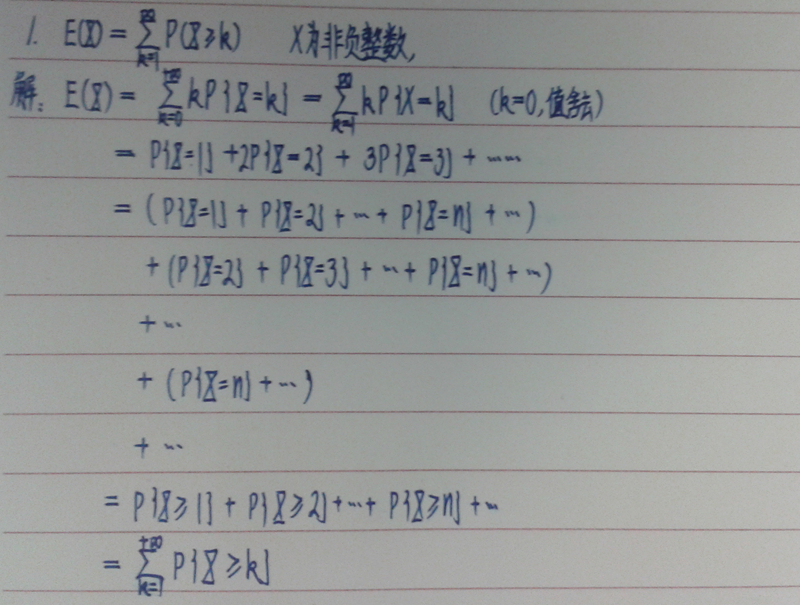 1. E(X) = ∑_{k=1}^{∞} P(X≥k)  X为非负整数,
解: E(X) = ∑_{k=0}^{+∞} kP{X=k} = ∑_{k=1}^{∞} kP{X=k} (k=0,值舍去)
= P{X=1} + 2P{X=2} + 3P{X=3} + ……
= (P{X=1} + P{X=2} + … + P{X=n} + …)
+ (P{X=2} + P{X=3} + … + P{X=n} + …)
+ …
+ (P{X=n} + …)
+ …
= P{X≥1} + P{X≥2} + … + P{X≥n} + …
= ∑_{k=1}^{+∞} P{X≥k}